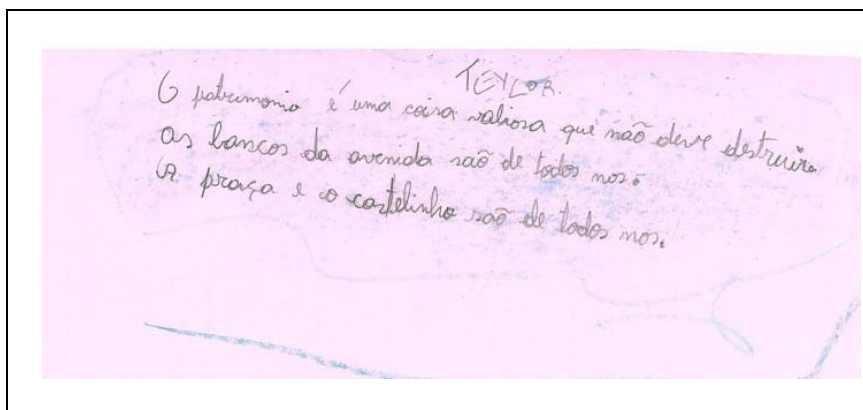 TEYLOR.
O patrimonio é uma coisa valiosa que não deve destruir.
as bancos da avenida saõ de todos nos.
A praça e o castelinho saõ de todos nos.